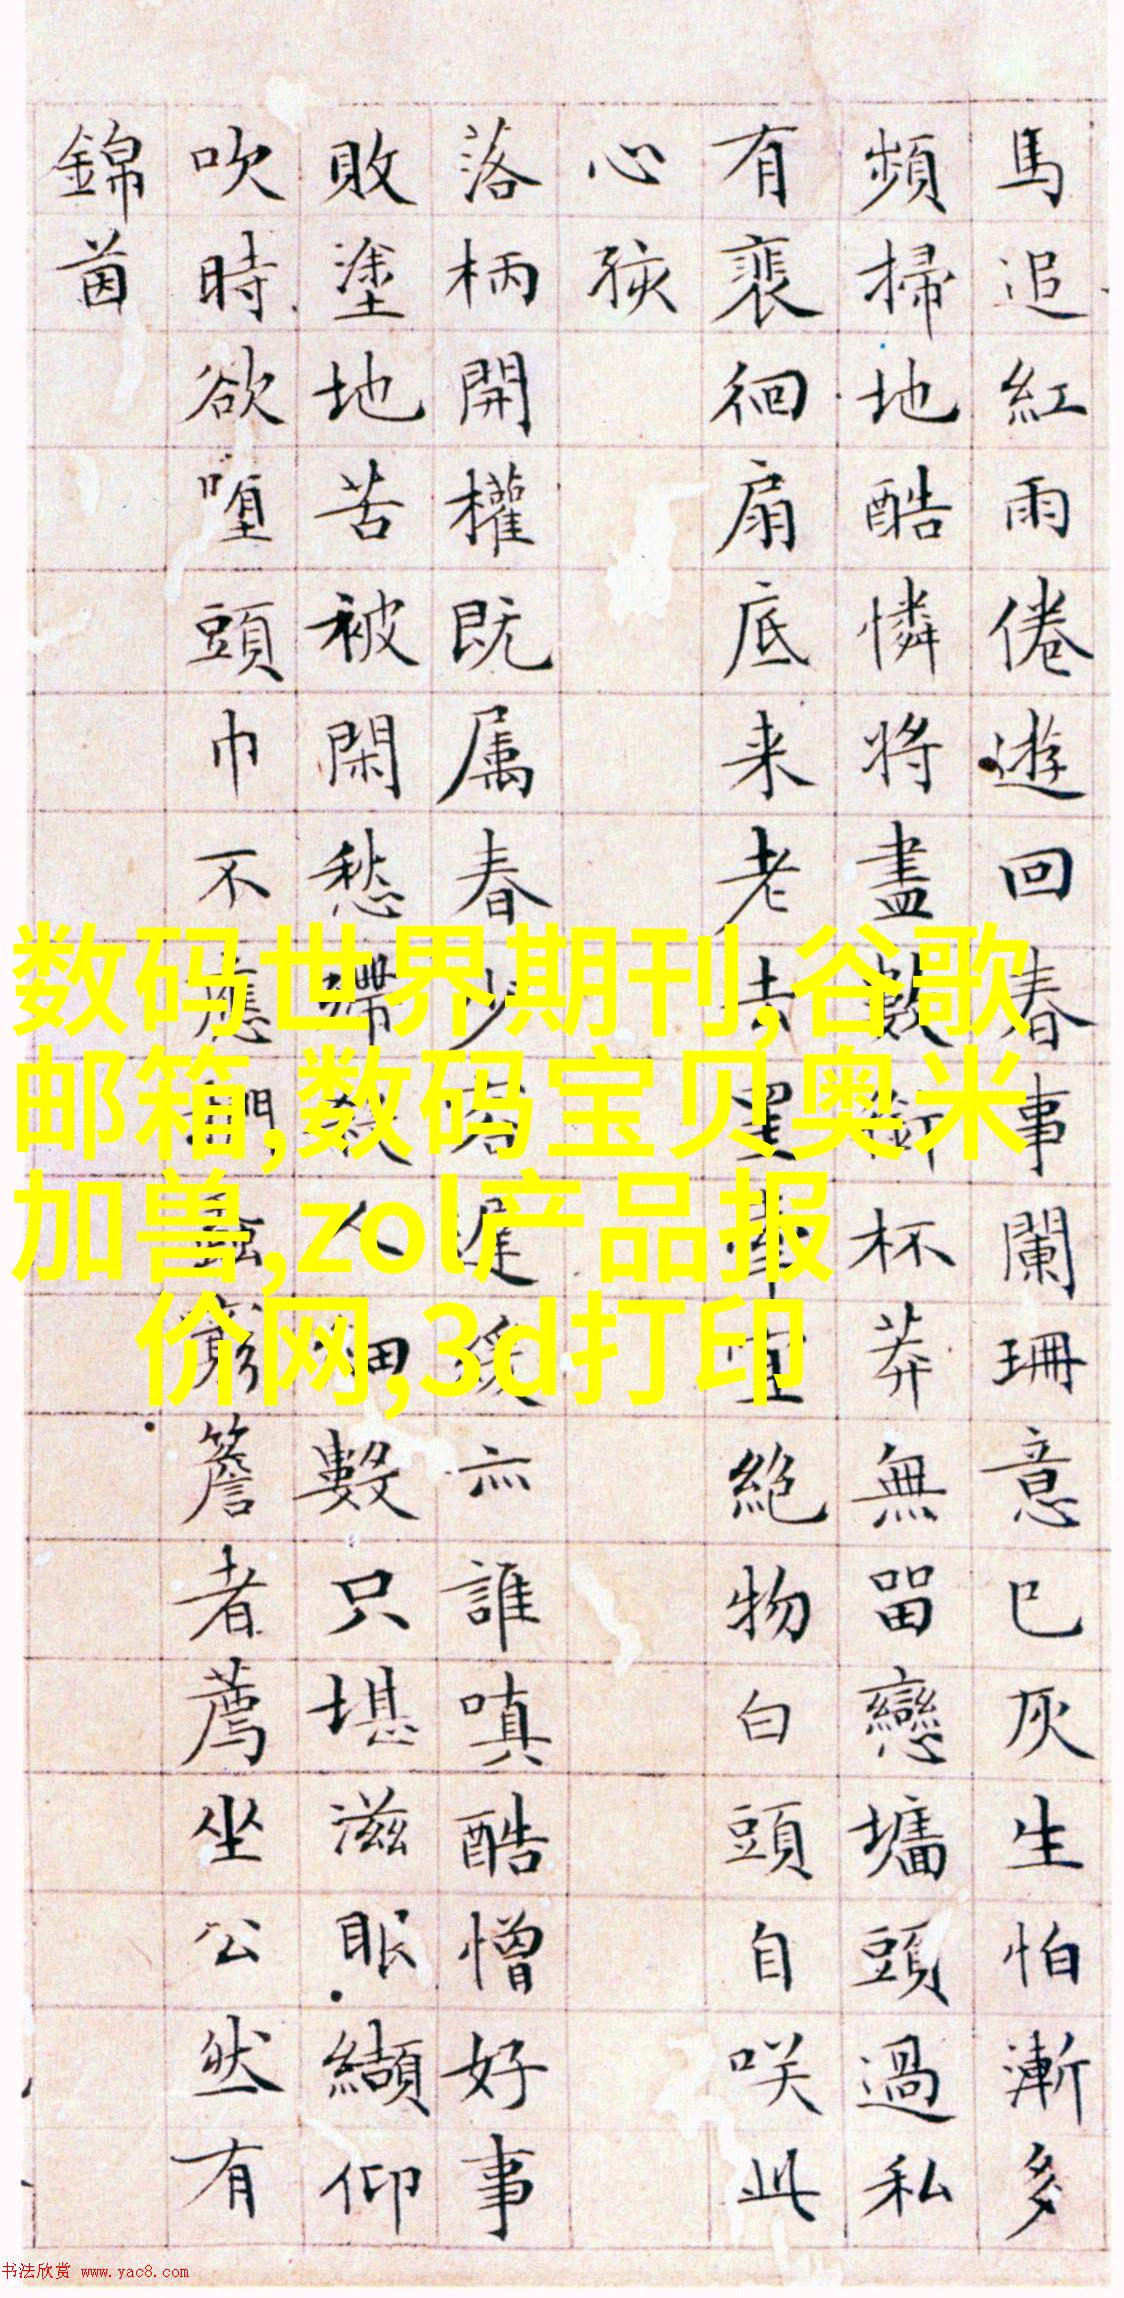 馬追紅雨倦遊回春事闌珊意已灰生怕漸多
頻掃地酷憐將盡數銜杯莽無留戀墻頭過私
有裴徊扇底来老去星宜絶物白頭自咲此
心孩
落柄開權既属春少遲緩亦誰嗔酷憎好事
敗塗地苦被閑愁殺人細數只堪滋眼纈仰
吹時欲堕頭巾不應窮簷者薦坐公然有
錦茵
数码世界期刊,谷歌
邮箱,数码宝贝奥米
加兽,zol产品报
价网,3d打印
书法欣赏 www.yac8.com